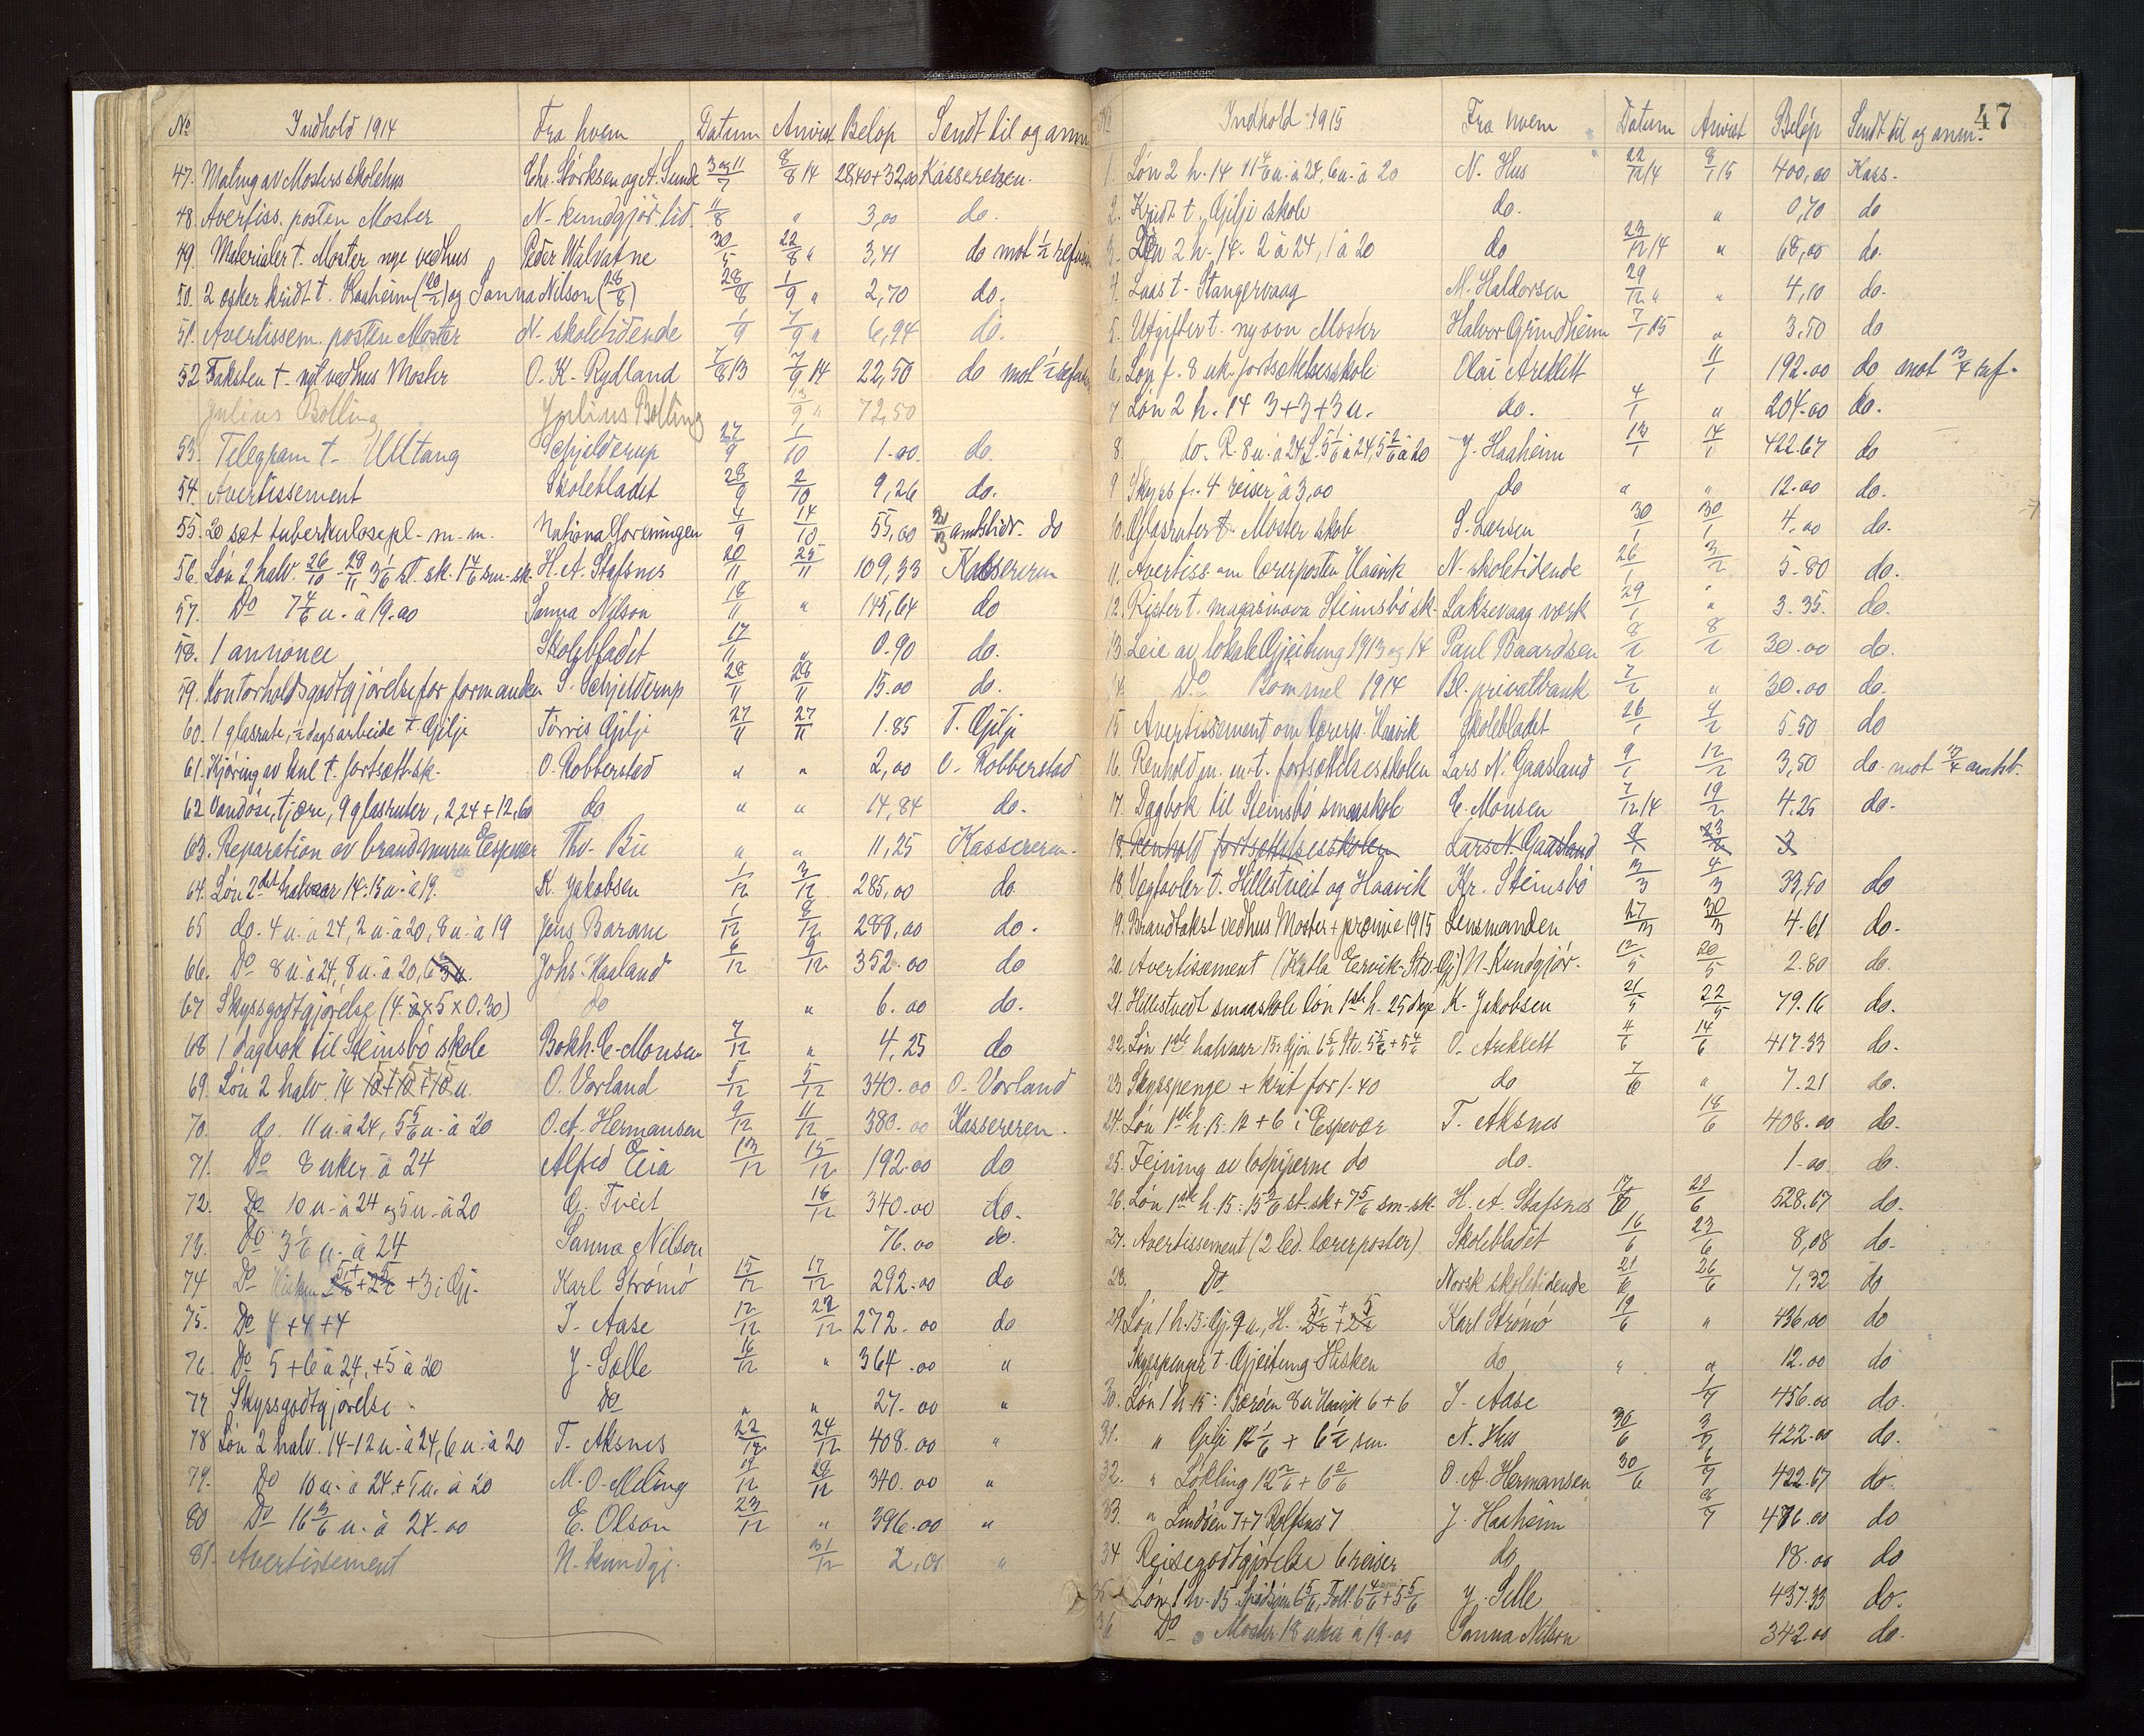 No Indhold 1914 Fra hvem Datum Anvist Beløp Sendt til og anm
47. Maling av Mosters skolehus Chr. Størksen og A. Sunde 3 og 11/7 8/8 14 28,40+32,00 Kassereren.
48. Avertiss. posten Moster N. kundgjör. tid. 11/8 " 3,00 do.
49. Materialer t. Moster nye vedhus Peder Walvatne 30/5 22/8 " 3,41 do mot 1/2 refusion
50. 2 æsker kridt t. Haaheim (20/2) og Sanna Nilson (28/8) 28/8 1/9 " 2,70 do.
51. Avertissem. posten Moster N. skoletidende 1/9 7/9 " 6,94 do.
52 Taksten t. nyt vedhus Moster O. K. Rydland 7/8 13 7/9 14 22,50 do mot 1/2 refusion
Julius Bolling Julius Bolling 13/9 " 72,50
53. Telegram t. Uttang Schjelderup 27/9 1/10 1.00 do
54. Avertissement Skolebladet 28/9 2/10 9,26 do.
55. 20 sæt tuberkulosepl. m. m. Nationalforeningen 4/9 14/10 55,00 amtsbidr. do
56. Løn 2 halv. 26/10 - 28/11 3 1/6 st. sk. 1 4/6 sm. sk. H. A. Stafsnes 20/11 25/11 109,33 Kassereren
57. Do 7 4/6 u. à 19.00 Sanna Nilson 18/11 " 145,64 do
58. 1 annonce Skolebladet 17/11 " 0.90 do.
59. Kontorholdsgodtgjörelse for formanden S. Schjelderup 28/11 28/11 15.00 do.
60. 1 glasrute, 1/2 dags arbeide t. Gilje Torris Gilje 27/11 27/11 1.85 T. Gilje
61. Kjøring av kul t. fortsætt. sk. O. Robberstad " " 2,00 O. Robberstad
62 Vandøse, tjære, 9 glasruter, 2,24 + 12,60 do " " 14,84 do.
63. Reparation av brandmuren Espevær Thv. Bie " " 11,25 Kassereren.
64. Løn 2det halvaar 14. 15 u. à 19. K. Jakobsen 1/12 3/12 285,00 do
65 do. 4 u. à 24, 2 u. à 20, 8 u. à 19 Jens Barane 1/12 8/12 288,00 do.
66. Do 8 u. à 24, 8 u. à 20, Johs. Haaland 6/12 9/12 352.00 do
67 Skyssgodtgjörelse (4. x 5 x 0.30) do " 6.00 do.
68 1 dagbok til Steinsbö skole Bokh. E. Monsen 7/12 " 4,25 do
69. Løn 2 halv. 14 5+5+5 u. O. Vorland 5/12 5/12 340.00 O. Vorland
70. do. 11 u. à 24, 5 5/6 u. à 20 O. A. Hermansen 9/12 11/12 380.00 Kassereren.
71. Do 8 uker à 24 Alfred Eeia 13/12 15/12 192.00 do
72. Do 10 u. à 24 og 5 u. à 20 G. Tveit 16/12 340.00 do.
73. Do 3 1/6 u. à 24 Sanna Nilson 76.00 do.
74 Do Hisken + 3 i Gj. Karl Strömö 15/12 17/12 292.00 do
75. Do 4+4+4 I. Aase 12/12 22/12 272.00 do
76. Do 5+6 à 24, +5 à 20 J. Selle 16/12 " 364.00 "
77 Skyssgodtgjörelse. Do " " 27.00 "
78 Løn 2 halv. 14 - 12 u. à 24, 6 u. à 20 T. Aksnes 22/12 24/12 408.00 "
79. Do 10 u. à 24 + 5 u. à 20 M. O. Meling 19/12 29/12 340.00 "
80 Do 16 3/6 u. à 24.00 E. Olson 23/12 " 396.00 "
81. Avertissement N. kundgj. 31/12 2,08 "
47
Indhold 1915 Fra hvem Datum Anvist Beløp Sendt til og anm.
1. Løn 2 h. 14 11 4/6 u. à 24, 6 u. à 20 N. Hus 22/12 14 8/1 15 400,00 Kass.
2. Kridt t. Gilje skole do. " 0,70 do
3. Løn 2 h. 14. 2 à 24, 1 à 20 do 23/12 14 " 68,00 do.
4. Laas t. Stangervaag M. Haldorsen 29/12 " " 4,10 do.
5. Utgifter t. ny ovn Moster Halvor Grindheim 7/1 15 " 3.50 do
6. Løn f. 8 uk. fortsættelsesskole Olai Areklett 11/1 192.00 do mot 3/4 ref.
7 Løn 2 h. 14 3+3+3 u. do. 4/1 " 204.00 do.
8. do. R. 8 u. à 24, L. 5 1/6 à 24, 5 2/6 à 20 J. Haaheim 13/1 14/1 422.67 do
9 Skyss fr. 4 reiser à 3,00 do " " 12.00 do.
10. Glasruter t. Moster skole S. Larsen 30/1 30/1 4.00 do.
11. Avertiss. om lærerposten Haavik N. skoletidende 26/1 3/2 5.80 do.
12. Rister t. magasinovn Steinsbö sk. Laksevaag verk 29/1 " 3.35. do.
13. Leie av lokale Gjeitung 1913 og 14 Paul Baardsen 8/2 8/2 30.00 do.
14. Do Bommel 1914 Bl. privatbank 2/2 " 30.00 do.
15 Avertissement om lærerp. Haavik Skolebladet 26/1 9/2 5.50 do
16. Renhold m. m. t. fortsættelsesskolen Lars N. Gaasland 9/1 12/2 3,50 do. mot 3/4 amtet.
17. Dagbok til Steinsbö smaaskole E. Monsen 7/12 14 19/2 4.25 do.
18. Renhold fortsættelsesskolen Lars N. Gaasland
18. Vægtavler t. Hillestveit og Haavik Kr. Steinsbö 3/3 4/3 33,50 do
19. Brandtakst vedhus Moster + præmie 1915 Lensmanden 27/3 30/3 4.61 do.
20. Avertissement (Katla Eervik. Sto. Gj.) N. Kundgjör. 12/5 20/5 2.80 do.
21. Hillestvedt smaaskole løn 1ste h. 25 dage K. Jakobsen 21/5 22/5 79.16 do.
22. Løn 1ste halvaar 15: Gjon 6 5/6 O. Areklett 4/6 14/6 417.33 do.
23. Skysspenge + krit for 1.40 do 7/6 " 7.21 do.
24. Løn 1ste h. 15. 12 + 6 i Espevær T. Aksnes 18/6 408.00 do.
25. Feining av lodpiperne do do. 1.00 do.
26. Løn 1ste h. 15: 15 2/6 st. sk + 7 5/6 sm. sk. H. A. Stafsnes 17/6 21/6 528.67 do.
27. Avertissement (2 led. lærerposter) Skolebladet 16/6 23/6 8,08 do.
28. Do Norsk skoletidende 21/6 26/6 7.32 do
29 Løn 1 h. 15. Gj. 9 u., H. Karl Strömö 19/6 " 436,00 do
Skysspenger t. Gjeitung-Hisken do " " 12.00 do
30. Løn 1 h. 15: Børöen 8 u Haavik 6 + 6 I. Aase 1/7 456.00 do.
31. " Gilje 12 1/6 + 6 1/2 sm. N. Hus 30/6 3/7 422.00 do.
32. " Løkling 12 2/6 + 6 2/6 O. A. Hermansen 30/6 6/7 422.67 do.
33. " Lindöen 7+7 Rolfsnes 7 J. Haaheim 8/7 476.00 do
34 Reisegodtgjörelse 6 reiser do 18.00 do
35 Løn 1 h. 15 6 5/6, Foll. 6 4/6 + 5 5/6 J. Selle 437.33 do.
36 Do Moster 18 uker à 19.00 Sanna Nilson 342.00 do.